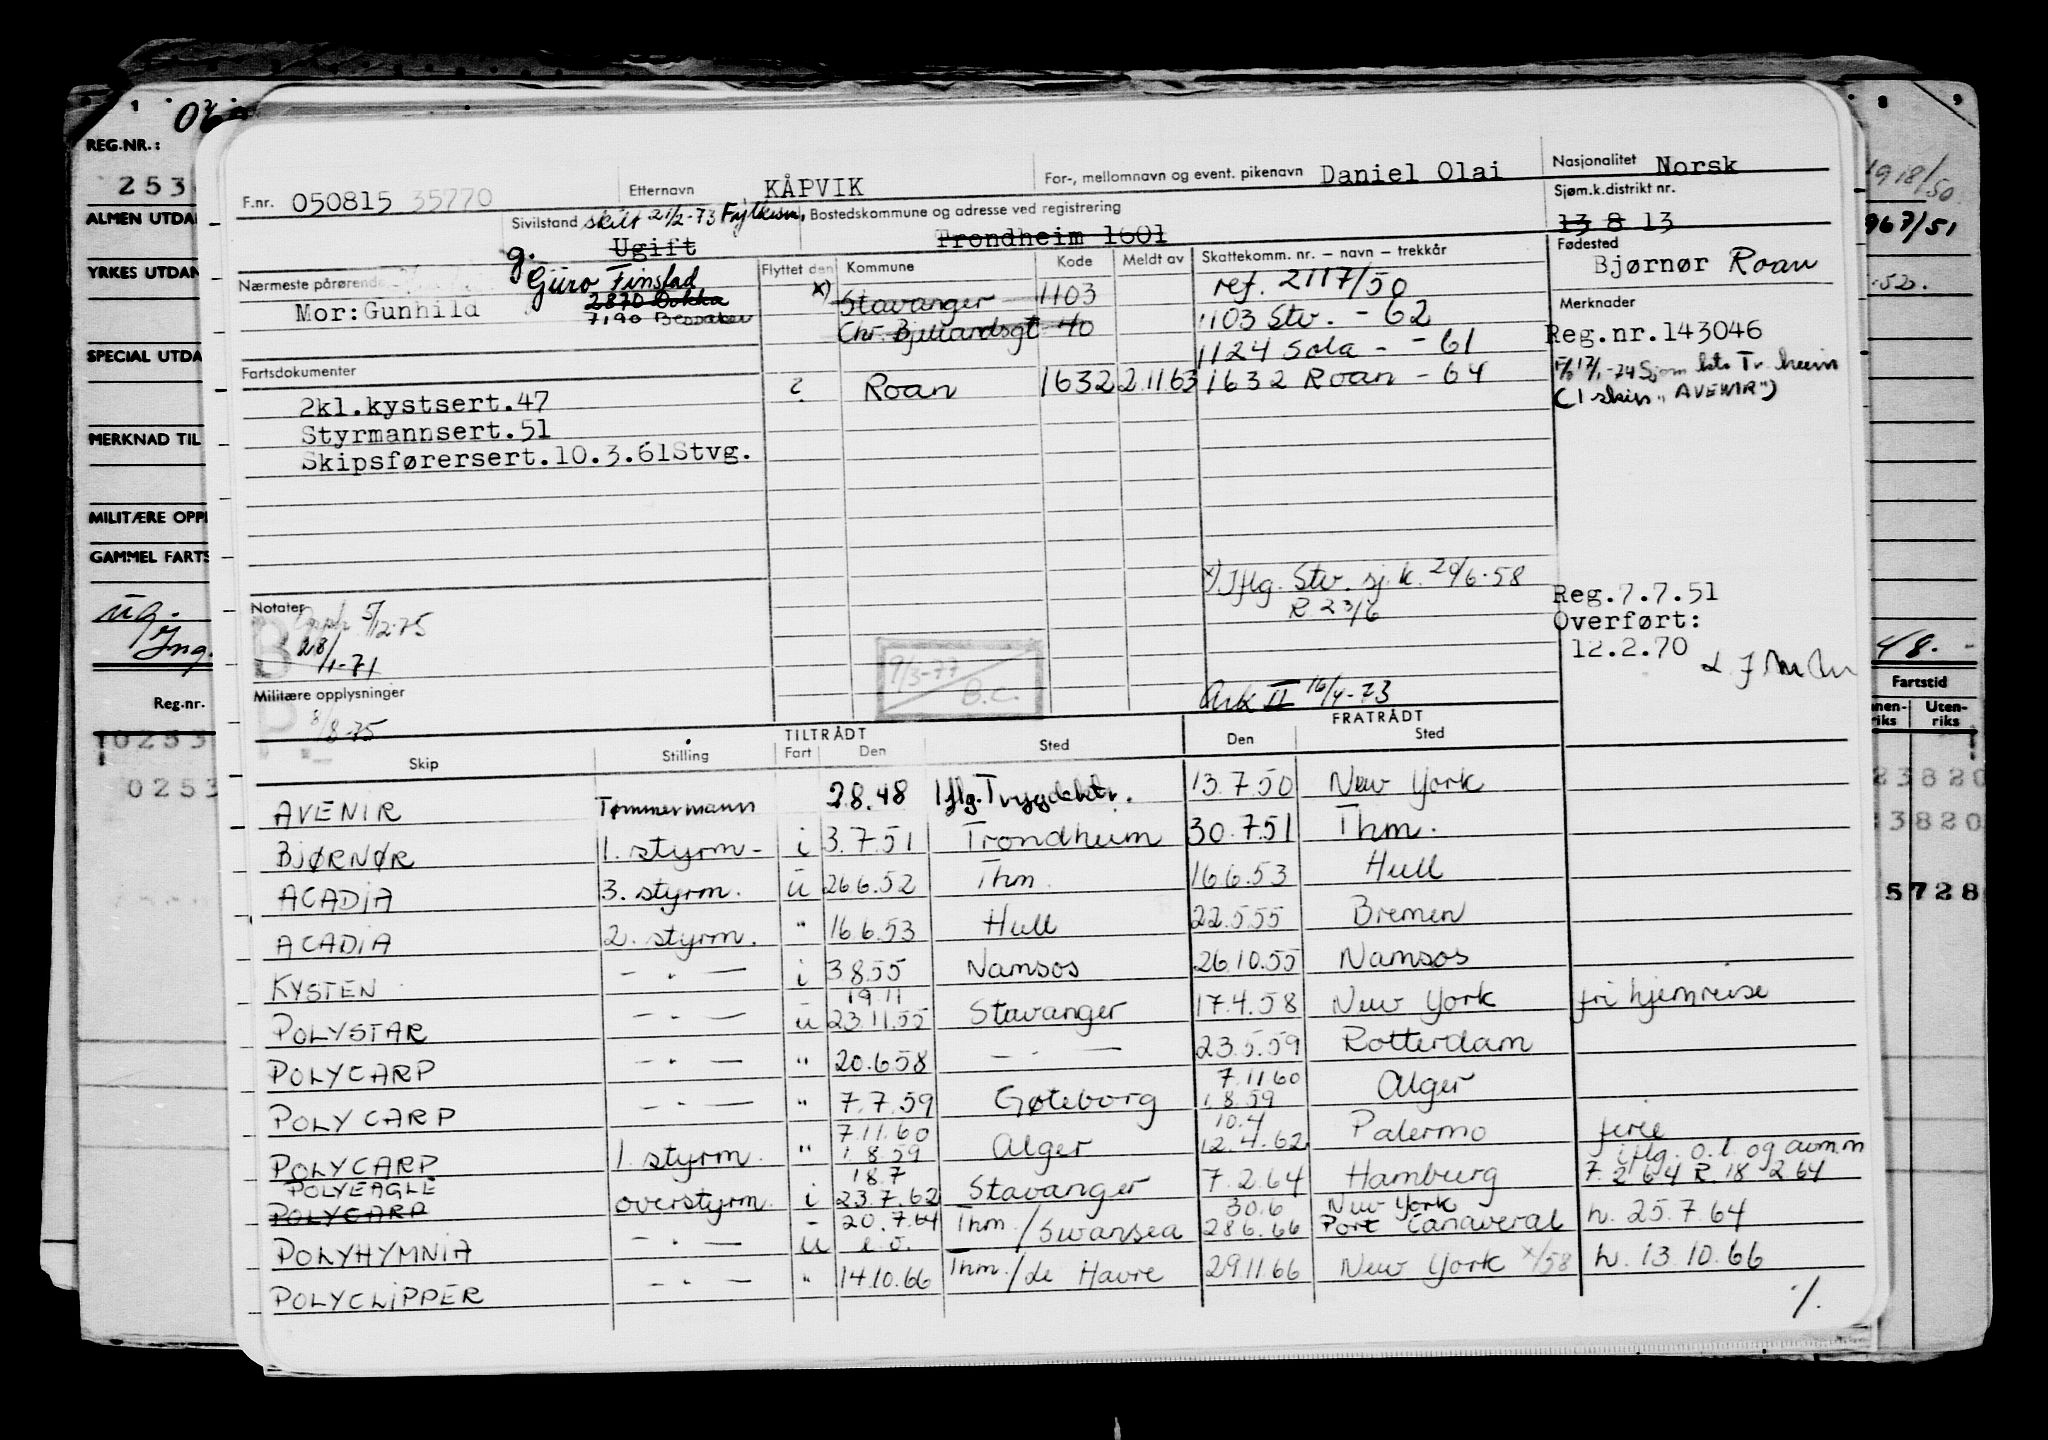 REG.NR.:
253
ALMEN UTDA
YRKES UTDAN
SPECIAL UTDA
MERKNAD TIL
MILITÆRE OPPL
GAMMEL FARTS
ug.
Reg.nr.
0253
0253
F.nr. 050815 35770
Etternavn KÅPVIK
For-, mellomnavn og event. pikenavn Daniel Olai
Nasjonalitet Norsk
Sivilstand skilt 21/2-73 Fylkesm.
g. Ugift
Bostedskommune og adresse ved registrering
Trondheim 1601
Sjøm.k.distrikt nr.
13 8 13
Fødested
Bjørnør Roan
Nærmeste pårørende
Guro Finstad
2870 Dokka
7190 Bessaker
Mor: Gunhild
Flyttet den Kommune Kode Meldt av Skattekomm. nr. – navn – trekkår
x) Stavanger 1103 ref. 2117/50
Chr. Bjellandsgt 40 1103 Stv. - 62
1124 Sola - - 61
? Roan 1632 2.11.63 1632 Roan - 64
Merknader
Reg.nr.143046
Sjøm kts Tr.heim
(1 skip "AVENIR")
Fartsdokumenter
2kl.kystsert.47
Styrmannsert.51
Skipsførersert.10.3.61Stvg.
x) Iflg. Stv. sj.k. 24/6-58
R 23/6
Reg.7.7.51
Overført:
12.2.70
Notater
Opph 5/12-75
28/1-71
9/3-77
B.C.
Militære opplysninger
8/8-75
Ark II 16/4-73
TILTRÅDT FRATRÅDT
Skip Stilling Fart Den Sted Den Sted
AVENIR Tømmermann 2.8.48 Iflg. Trygdektr. 13.7.50 New York
BJØRNØR 1. styrm- i 3.7.51 Trondheim 30.7.51 Thm.
ACADIA 3. styrm. u 26.6.52 Thm. 16.6.53 Hull
ACADIA 2. styrm. " 16.6.53 Hull 22.5.55 Bremen
KYSTEN - " - i 3.8.55 Namsos 26.10.55 Namsos
POLYSTAR - " - u 19.11 23.11.55 Stavanger 17.4.58 New York fri hjemreise
POLYCARP - " - " 20.6.58 - " - 23.5.59 Rotterdam
POLYCARP - " - " 7.7.59 Gøteborg 7.11.60 1.8.59 Alger
POLYCARP 1. styrm. " 7.11.60 1.8.59 Alger 10.4 12.4.62 Palermo ferie
POLYEAGLE POLYCARP overstyrm. i 18.7 23.7.62 Stavanger 7.2.64 Hamburg iflg. o.l. og avm.m 7.2 64 R. 18 2 64
POLYHYMNIA - " - u 20.7.64 Thm./Swansea 30.6 28.6.66 New York Port Canaveral h. 25.7.64
POLYCLIPPER - " - " 14.10.66 Thm./le Havre 29.11.66 New York x/58 h. 13.10.66
·/.
8 9
1918/50
967/51
48.-
Fartstid
nen-riks Uten-riks
23820
3820
5728